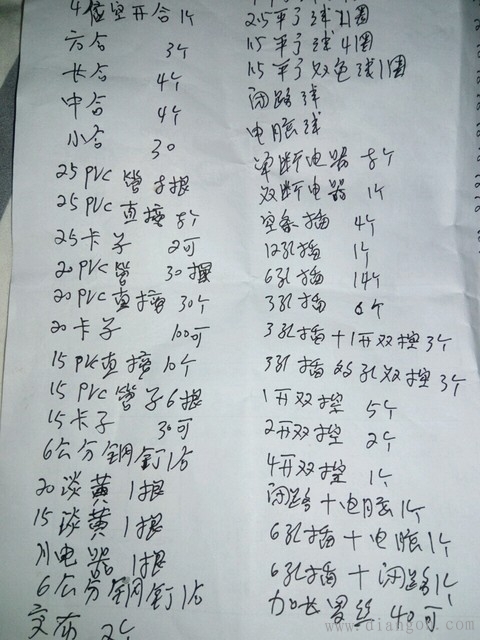 4位空开合 1个
六合 3个
长合 4个
中合 4个
小合 30
25 PVC 管 8根
25 PVC 直接 8个
25 卡子 2可
20 PVC 管 30根
20 PVC 直接 30个
20 卡子 100可
15 PVC 直接 10个
15 PVC 管子 6根
15 卡子 30可
6公分钢钉 1合
20 淡黄 1根
15 淡黄 1根
电器 1根
6公分钢钉 1合
交布 2个
2.5平子线 圈
1.5平子线 4圈
1.5平子双色线 1圈
闭路线
电脑线
断电器 8个
双断电器 1个
空条插 4个
12孔插 1个
6孔插 14个
3孔插 6个
3孔插+1开双控 3个
3孔插 孔双控 3个
1开双控 5个
2开双控 2个
4开双控 1个
闭路+电脑 1个
6孔插+电脑 1个
6孔插+闭路 1个
加长罗丝 40可
www.diangon.com